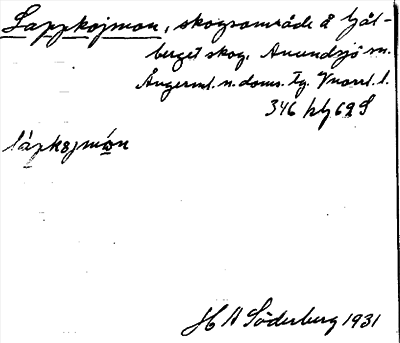 Lappkojmon, skogsområde å Gål-
berget skog. Anundsjö sn.
Ångerml. n. doms. tg. Vnorrl. l.
346 hkg 62 S
lápkojmón
H A Söderberg 1931